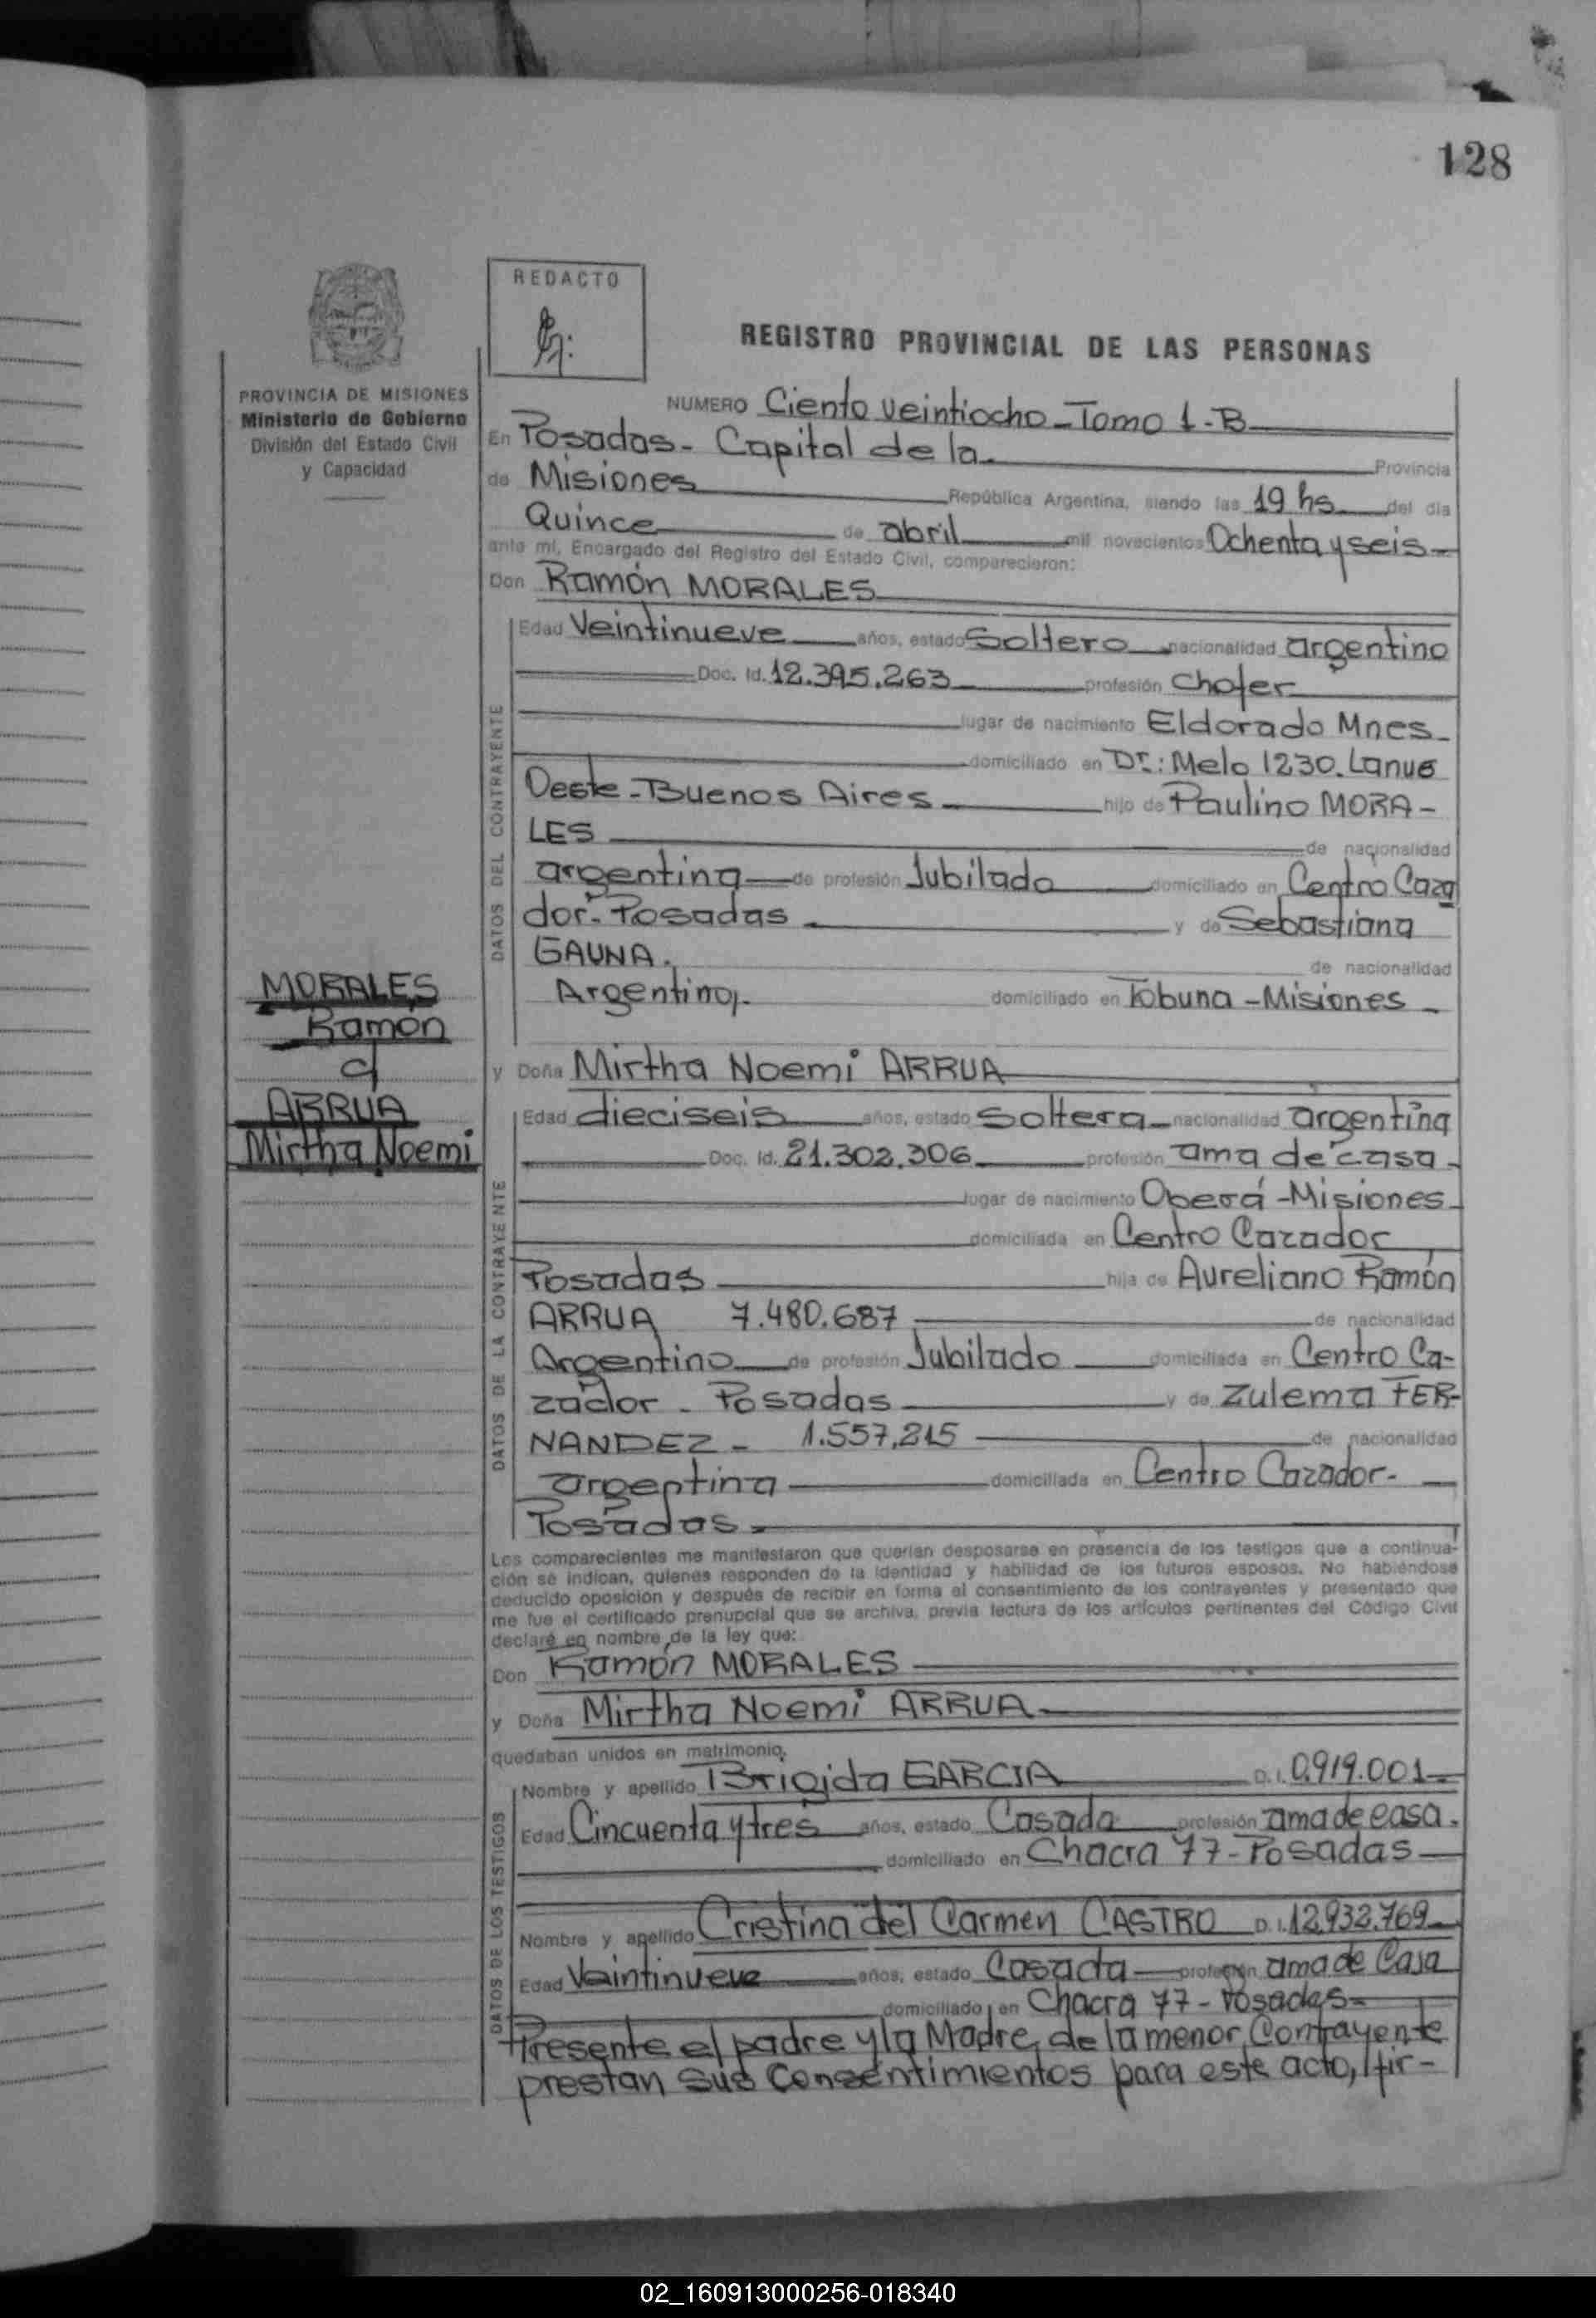 128
REDACTO
REGISTRO PROVINCIAL DE LAS PERSONAS
PROVINCIA DE MISIONES
Ministerio de Gobierno
División del Estado Civil
y Capacidad
NUMERO Ciento veintiocho - Tomo 1-B
En Posadas - Capital de la Provincia
de Misiones República Argentina, siendo las 19 hs del día
Quince de abril mil novecientos Ochenta y seis
ante mí, Encargado del Registro del Estado Civil, comparecieron:
Don Ramón MORALES
DATOS DEL CONTRAYENTE
Edad Veintinueve años, estado Soltero nacionalidad argentino
Doc. Id. 12.395.263 profesión Chofer
lugar de nacimiento Eldorado Mnes.
domiciliado en Dr.: Melo 1230. Lanus
Oeste - Buenos Aires hijo de Paulino MORA-
LES de nacionalidad
argentina de profesión Jubilado domiciliado en Centro Caza
dor - Posadas y de Sebastiana
GAUNA. de nacionalidad
Argentina domiciliado en Tobuna - Misiones
MORALES
Ramón
c/
ARRUA
Mirtha Noemi
y Doña Mirtha Noemi ARRUA
DATOS DE LA CONTRAYENTE
Edad dieciseis años, estado Soltera nacionalidad argentina
Doc. Id. 21.302.306 profesión ama de casa
lugar de nacimiento Oberá - Misiones
domiciliada en Centro Cazador
Posadas hija de Aureliano Ramón
ARRUA 7.480.687 de nacionalidad
Argentino de profesión Jubilado domiciliada en Centro Ca-
zador - Posadas y de Zulema FER-
NANDEZ - 1.557.215 de nacionalidad
argentina domiciliada en Centro Cazador -
Posadas
Los comparecientes me manifestaron que querían desposarse en presencia de los testigos que a continua-
ción se indican, quienes responden de la identidad y habilidad de los futuros esposos. No habiéndose
deducido oposición y después de recibir en forma el consentimiento de los contrayentes y presentado que
me fue el certificado prenupcial que se archiva, previa lectura de los artículos pertinentes del Código Civil
declaré en nombre de la ley que:
Don Ramón MORALES
y Doña Mirtha Noemi ARRUA
quedaban unidos en matrimonio.
DATOS DE LOS TESTIGOS
Nombre y apellido Brigida GARCIA D.I. 0.919.001
Edad Cincuenta y tres años, estado Casada profesión ama de casa.
domiciliado en Chacra 77 - Posadas
Nombre y apellido Cristina del Carmen CASTRO D.I. 12.932.769
Edad Veintinueve años, estado Casada profesión ama de Casa
domiciliado en Chacra 77 - Posadas
Presente el padre y la Madre de la menor Contrayente
prestan sus Consentimientos para este acto, fir-
02_160913000256-018340